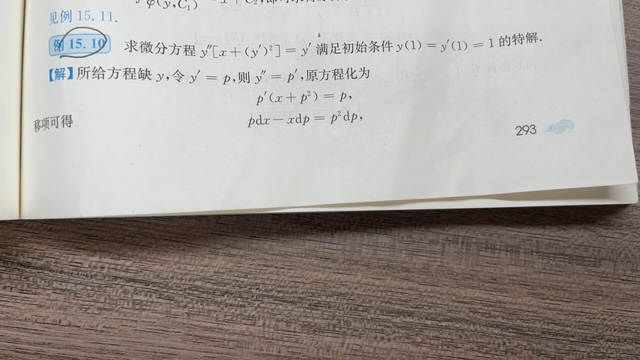 φ(y,C₁)
见例 15.11.
例 15.10 求微分方程 y″[x+(y′)²]=y′ 满足初始条件 y(1)=y′(1)=1 的特解.
【解】所给方程缺 y,令 y′=p,则 y″=p′,原方程化为
p′(x+p²)=p,
移项可得 pdx-xdp=p²dp,
293